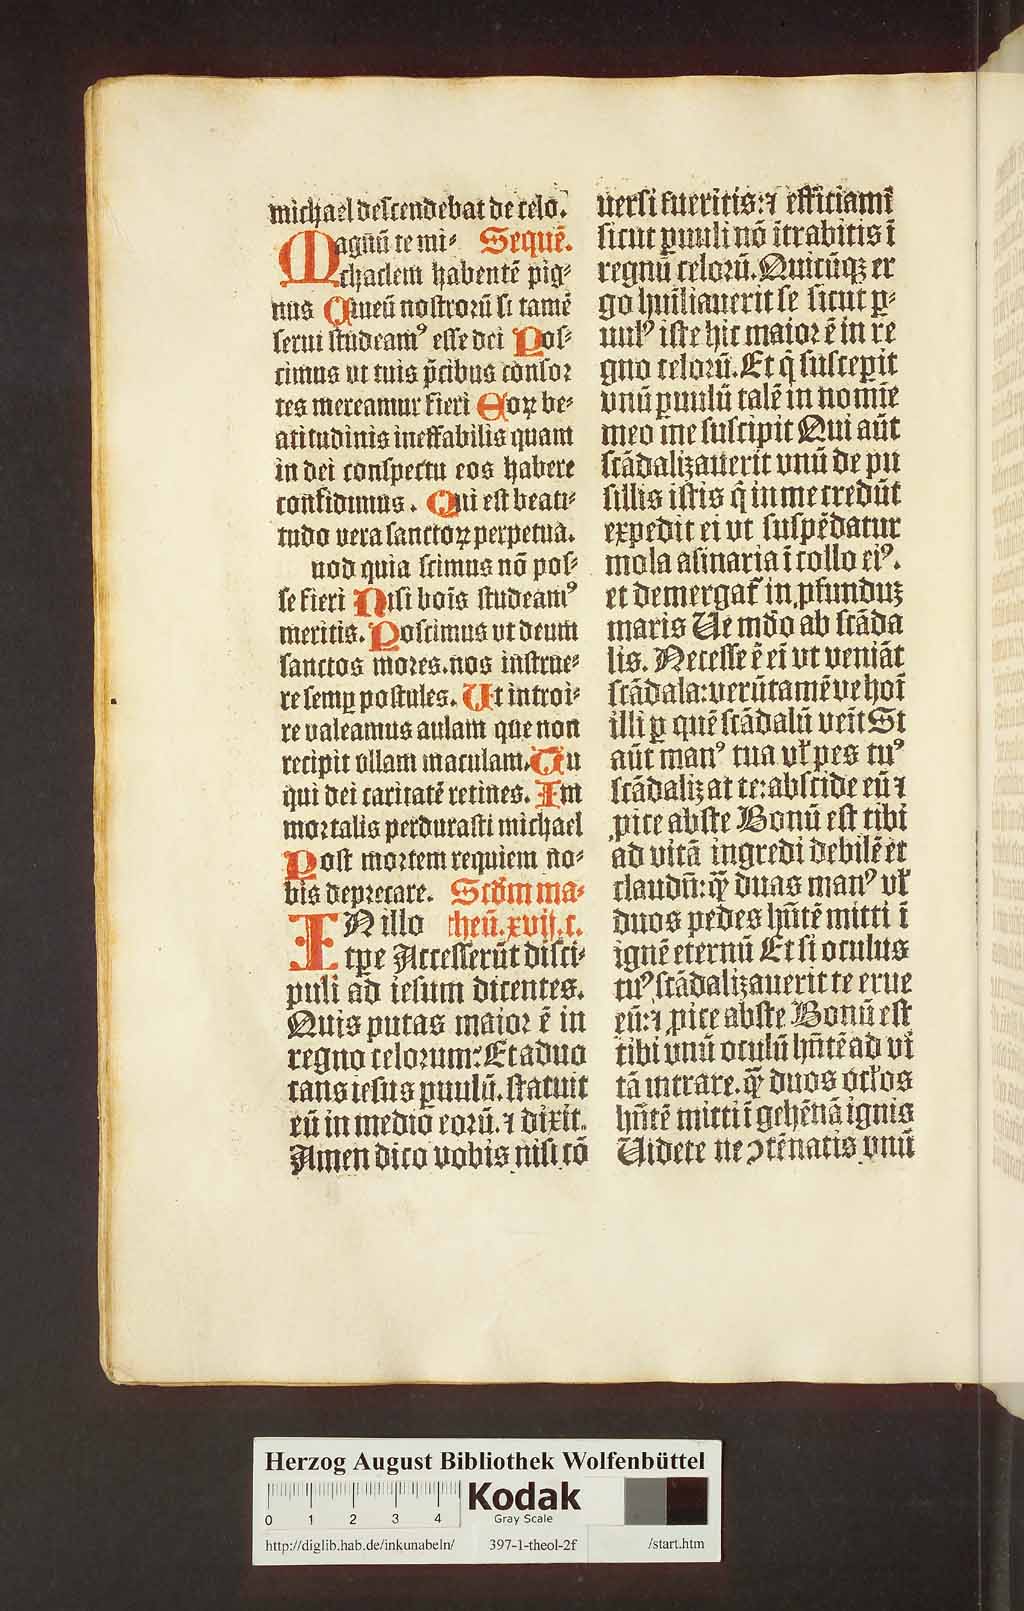 michael descendebat de celo.
Magnū te mi- Sequē.
chaelem habentē pig-
nus Qmeū nostrorū si tamē
serui studeamꝰ esse dei Pos-
cimus vt tuis p̄cibus consor
tes mereamur fieri Eoꝝ be-
atitudinis ineffabilis quam
in dei conspectu eos habere
confidimus. Qui est beati-
tudo vera sanctoꝝ perpetua.
uod quia scimus nō pos-
se fieri Nisi bois studeamꝰ
meritis. Poscimus vt deum
sanctos mores. nos instrue-
re semꝑ postules. Ut introi-
re valeamus aulam que non
recipit vllam maculam. Tu
qui dei caritatē retines. Im
mortalis perdurasti michael
Post mortem requiem no-
bis deprecare. Scd̄m ma-
IN illo theū. xvij. c.
tꝑe Accesserūt disci-
puli ad iesum dicentes.
Quis putas maior ē in
regno celorum: Et aduo
cans iesus ꝑuulū. statuit
eū in medio eorū. ⁊ dixit.
Amen dico vobis nisi cō
uersi fueritis: ⁊ efficiamī
sicut ꝑuuli nō ītrabitis ī
regnū celorū. Quicūqꝫ er
go huīliauerit se sicut ꝑ-
uulꝰ iste hic maior ē in re
gno celorū. Et q̄ susceperit
vnū ꝑuulū talē in nomīe
meo me suscipit Qui aūt
scādalizauerit vnū de pu
sillis istis q̄ in me credūt
expedit ei vt suspēdatur
mola asinaria ī collo eiꝰ.
et demergat̄ in ꝓfunduꝫ
maris Ve mūdo ab scāda
lis. Necesse ē eī vt veniāt
scādala: verūtamē ve hoī
illi ꝑ quē scādalū veīt Si
aūt manꝰ tua vꝉ pes tuꝰ
scādalizat te: abscide eū ⁊
ꝓice abs te Bonū est tibi
ad vitā ingredi debilē et
claudū: q̄ꝫ duas manꝰ vꝉ
duos pedes hn̄tē mitti ī
ignē eternū Et si oculus
tuꝰ scādalizauerit te erue
eū: ⁊ ꝓice abs te Bonū est
tibi vnū oculū hn̄tē ad vi
tā intrare. q̄ꝫ duos ocꝉos
hn̄tē mitti ī gehēnā ignis
Videte ne ꝯtēnatis vnū
Herzog August Bibliothek Wolfenbüttel
0 1 2 3 4
Kodak
Gray Scale
http://diglib.hab.de/inkunabeln/ 397-1-theol-2f /start.htm